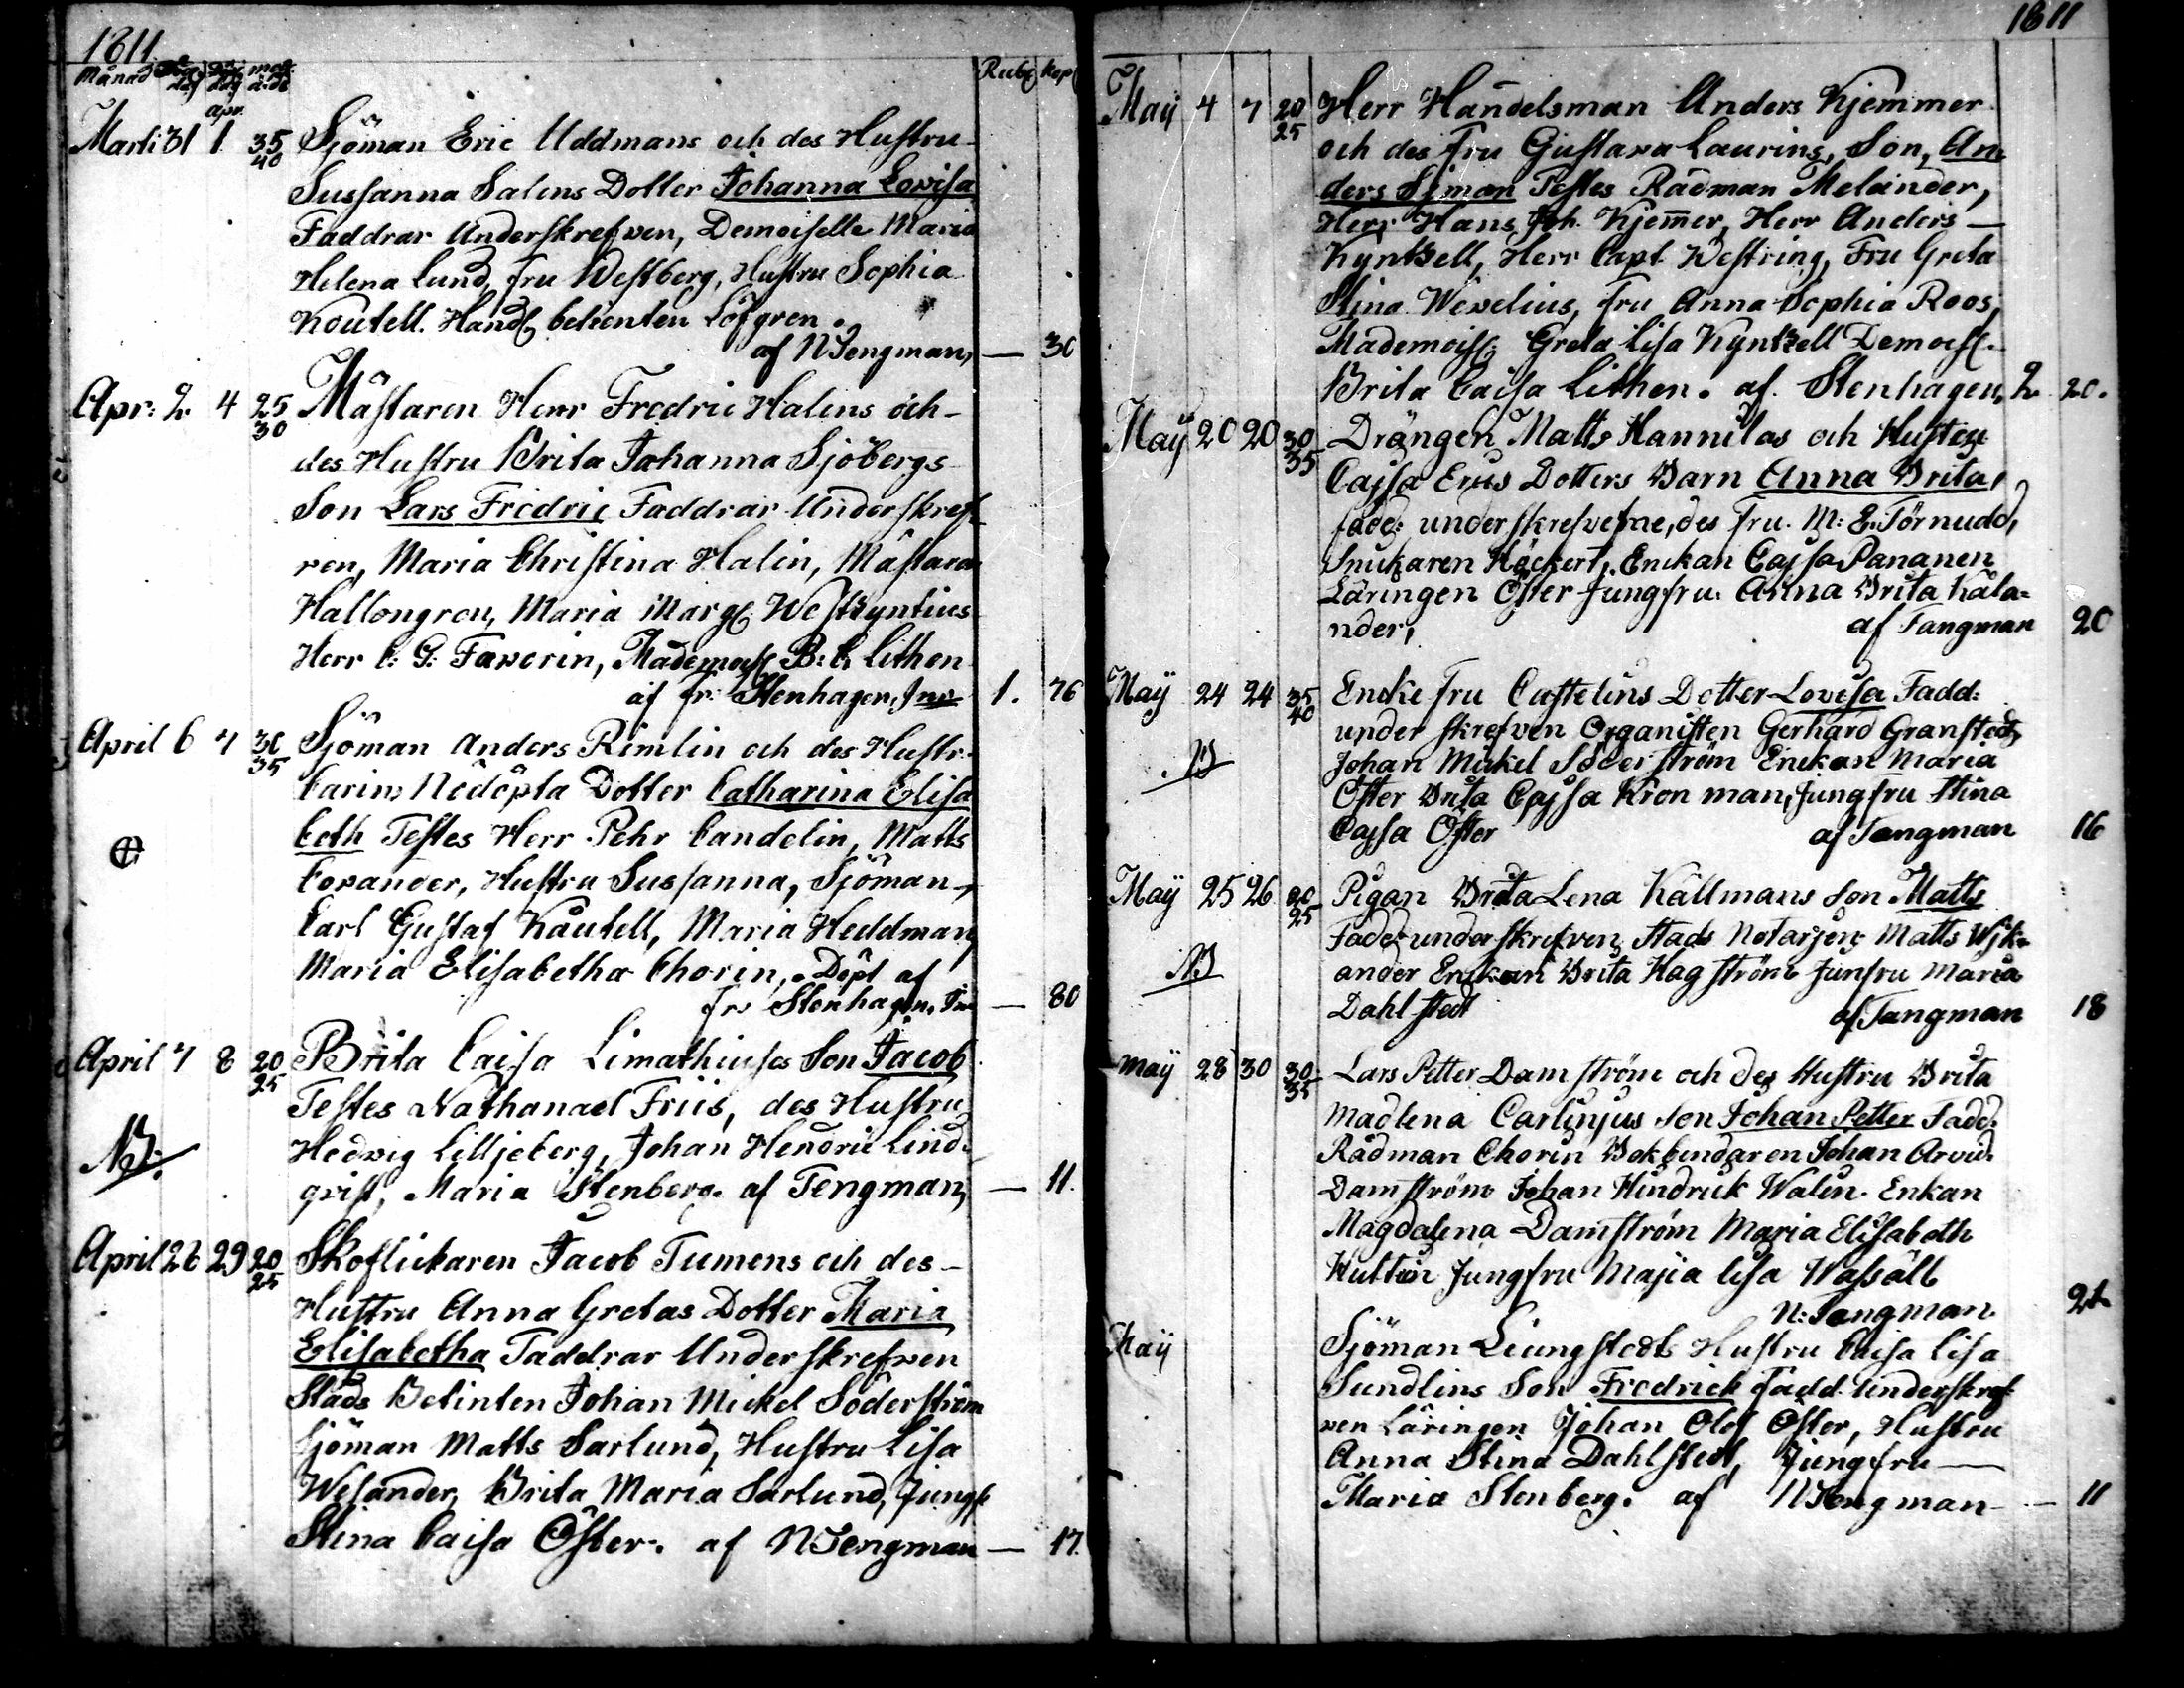 1811
Månad
Rub. Kop.
Apr.
Marti 31 1 35 Sjöman Eric Uddmans och des Hustru
40
Sussanna Salens Dotter Johanna Lovisa
Faddrar Underskrefven, Demoiselle Maria
Helena Lund, fru Westberg, Hustru Sophia
Koutell. Handl betienten Löfgren.
af NTengman, — 30
Apr: 2 4 25 Mästaren Herr Fredric Halins och
30
des Hustru Brita Johanna Sjöbergs
Son Lars Fredric Faddrar Underskref
ven, Maria Christina Halin, Mästaren
Hallongren, Maria Marg. Westzyntius
Herr C: G: Faverin, Mademois. B: C. Lithen
af fr: Stenhagen, 1. 76
April 6 7 30 Sjöman Anders Rimlin och des Hustr.
35
Carin Nedöpta Dotter Catharina Elisa
beth Testes Herr Pehr Candelin, Matts
Covander, Hustru Sussanna, Sjöman
Carl Gustaf Kåutell, Maria Heddman,
Maria Elisabetha Chorin, Döpt af
fr: Stenhagen, — 80
April 7 8 20 Brita Caisa Limathiuses Son Jacob
25
Testes Nathanael Friis, des Hustru
NB. Hedvig Lilljeberg, Johan Hendric Lind-
qvist, Maria Stenberg. af Tengman, — 11.
April 28 29 20 Skoflickaren Jacob Tumens och des
25
Hustru Anna Gretas Dotter Maria
Elisabetha Faddrar Underskrefven
Stads Betinten Johan Mickel Söderström
Sjöman Matts Sarlund, Hustru Lisa
Welander, Brita Maria Sarlund, Jungf
Stina Caisa Öster. af NTengman — 17.
1811
May 4 7 20 Herr Handelsman Anders Kjemmer
25
och des Fru Gustava Laurins, Son, An
ders Siman Testes Rådman Melander,
Herr Hans Joh. Kjemmer, Herr Anders —
Kyntzell, Herr Capt Westring, Fru Greta
Stina Wevelius, fru Anna Sophia Roos,
Mademois. Greta Lisa Kyntzell Demois.
Brita Caisa Lithen. af Stenhagen, 2 20.
May 20 20 30 Drängen Matts Hannilas och Hustru
35
Cajsa Ers Dotters Barn Anna Brita,
fadd: underskrefvetne, des fru. M: E: Törnudd,
Snickaren Höckert, Enckan Cajsa Pananen
Läringen Öster Jungfru Anna Brita Kåla-
nder, af Tangman 20
May 24 24 35 Encke fru Castelins Dotter Lovisa Fadd:
40
underskrefven Organisten Gerhard Granstedt
NB Johan Mickel Söderström Enckan Maria
Öster Brita Cajsa Kronman, Jungfru Stina
Cajsa Öster af Tangman 16
May 25 26 20 Pigan Brita Lena Kållmans Son Matts
25
Fadd: underskrefven, Stads Notarjen Matts Wik-
NB ander Enckan Brita Hagström Junfru Maria
Dahlstedt af Tangman 18
May 28 30 30 Lars Petter Damström och des Hustru Brita
35
Madlena Carlinjus Son Johan Petter Fadd:
Rådman Chorin Bokbindaren Johan Arvid
Damström Johan Hindrick Walin. Enkan
Magdalena Damström Maria Elisabeth
Huttin Jungfru Majia Lisa Wassäll
N: Tangman 21
May Sjöman Liungstedts Hustru Caisa Lisa
Sundlins Son Fredrick Fadd. Underskref-
ven Läringen Johan Olof Öster, Hustru
Anna Stina Dahlstedt, Jungfru —
Maria Stenberg. af NTengman — 11